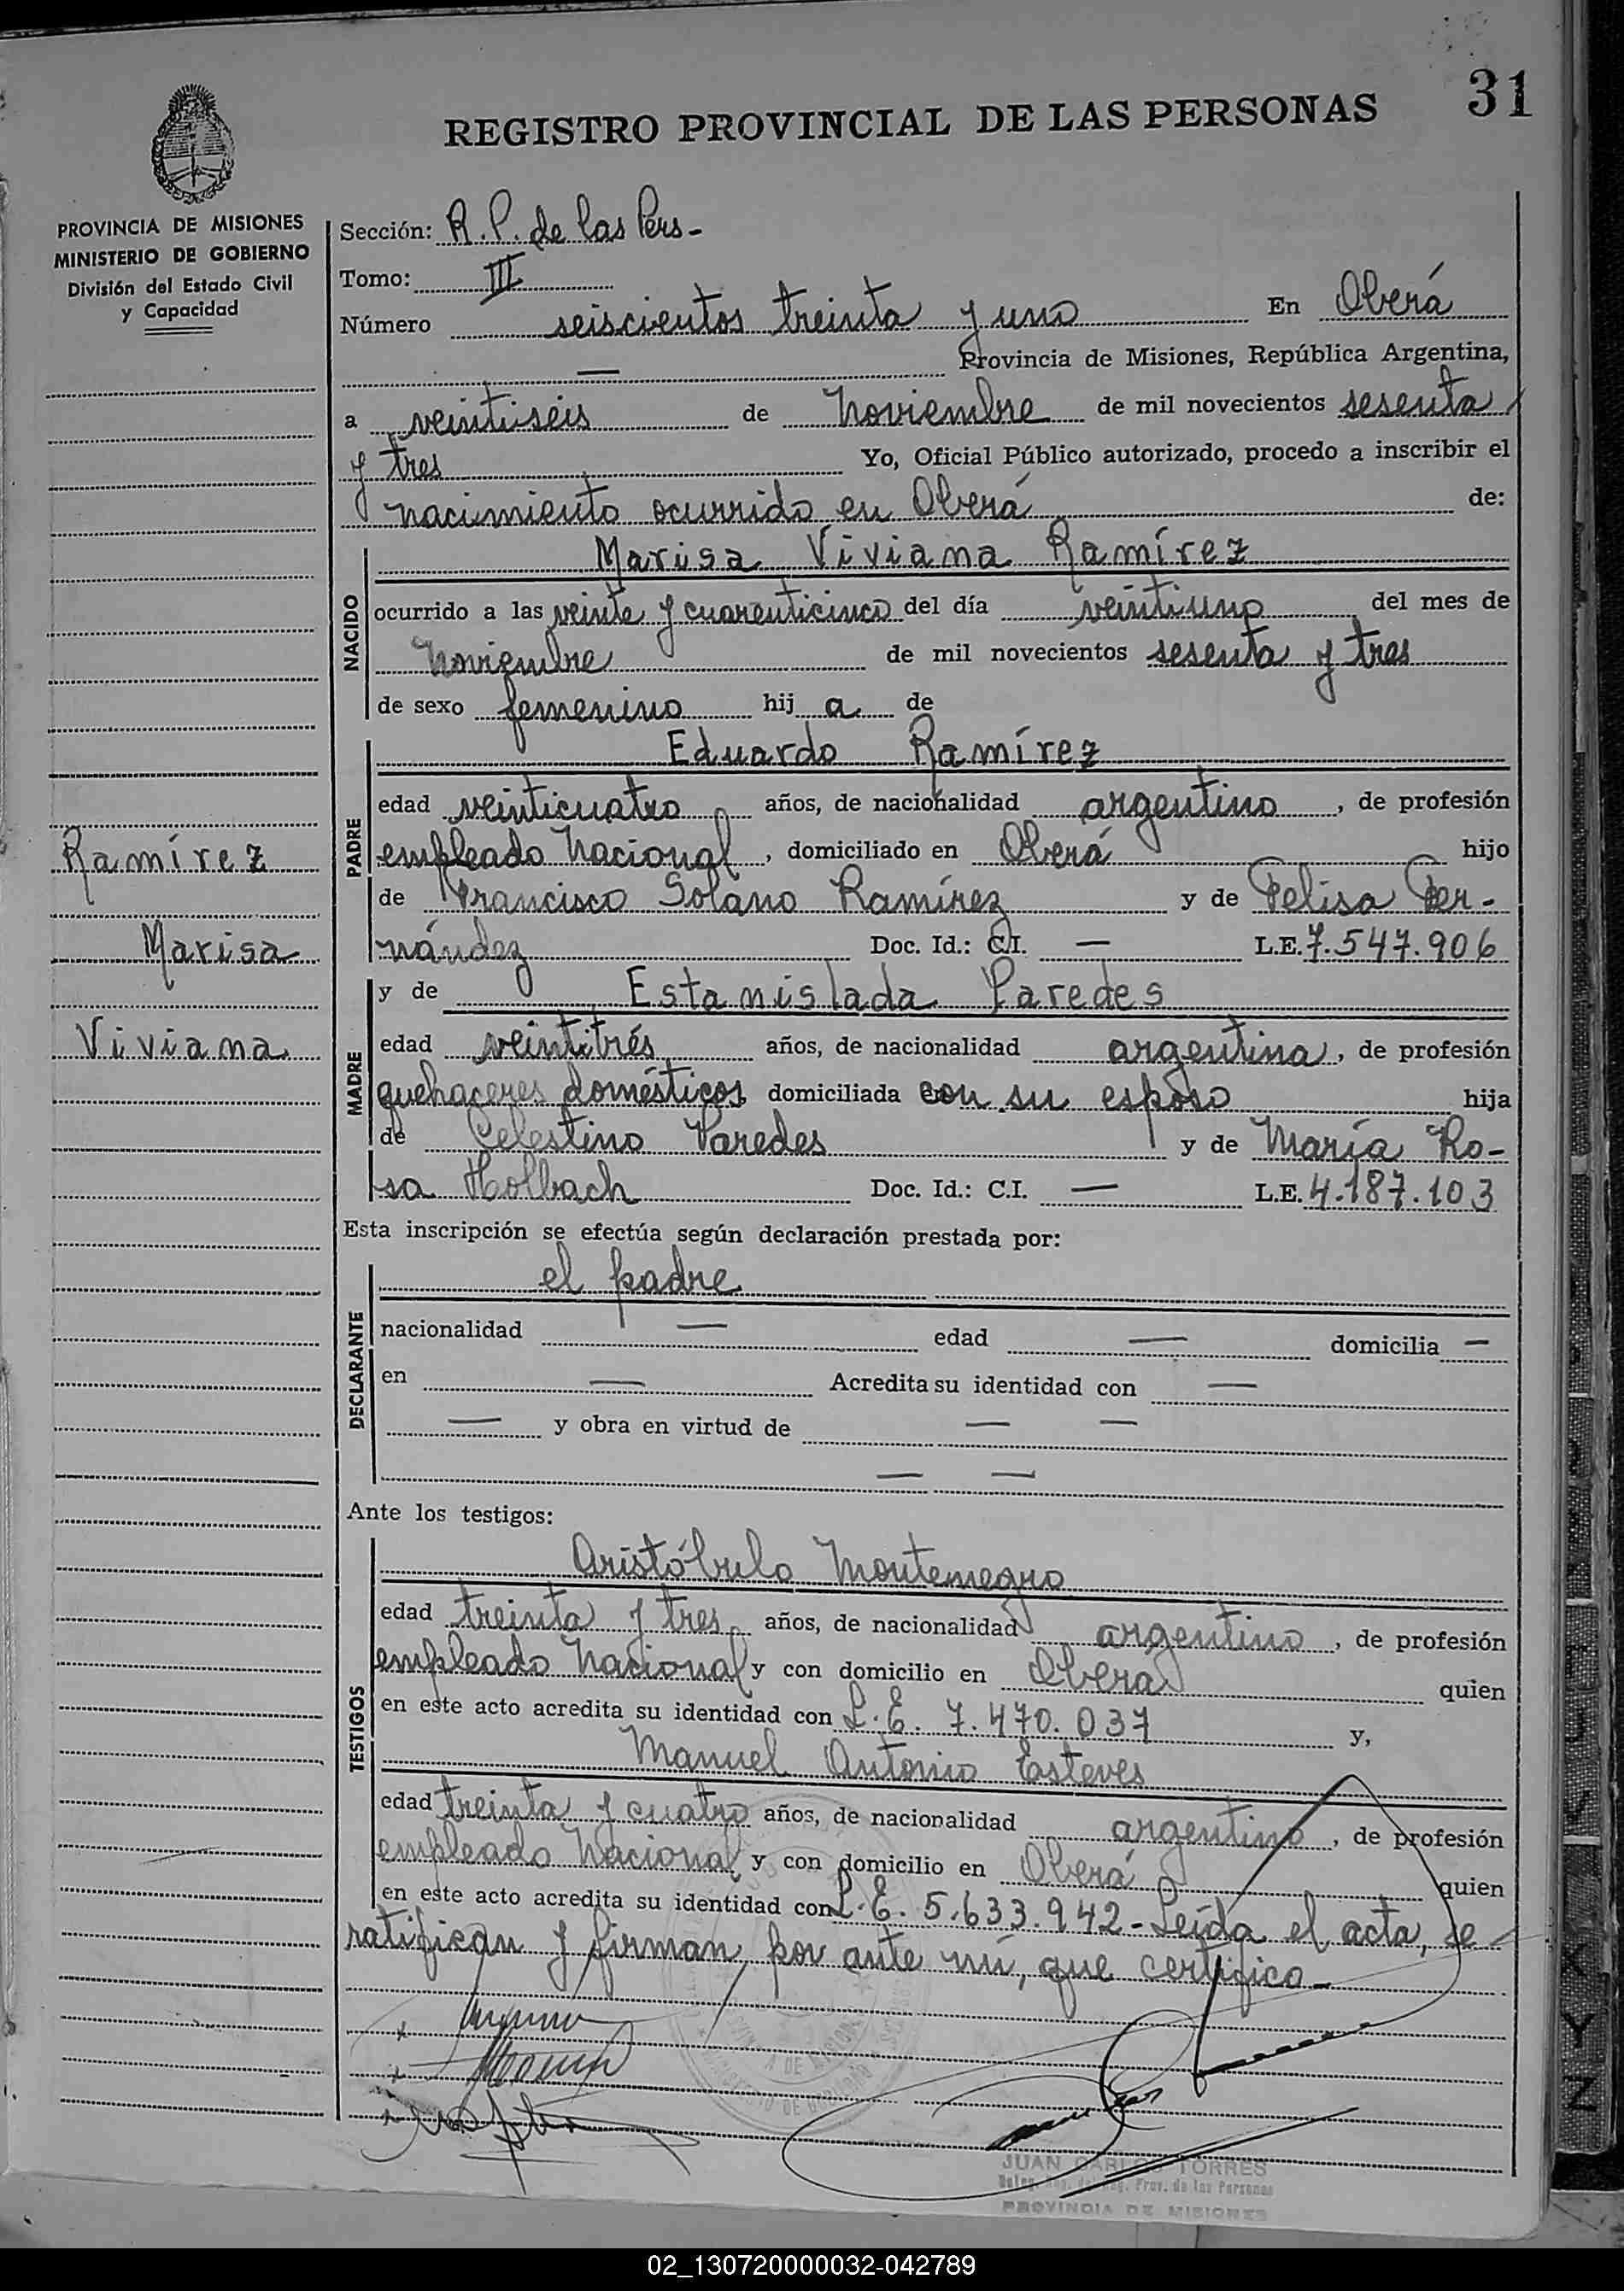 31
REGISTRO PROVINCIAL DE LAS PERSONAS
PROVINCIA DE MISIONES
MINISTERIO DE GOBIERNO
División del Estado Civil
y Capacidad
Sección: R. P. de las Pers-
Tomo: III
Número seiscientos treinta y uno En Oberá
— Provincia de Misiones, República Argentina,
a veintiséis de Noviembre de mil novecientos sesenta
y tres Yo, Oficial Público autorizado, procedo a inscribir el
nacimiento ocurrido en Oberá de:
NACIDO
Marisa Viviana Ramírez
ocurrido a las veinte y cuarenticinco del día veintiuno del mes de
Noviembre de mil novecientos sesenta y tres
de sexo femenino hij a de
PADRE
Eduardo Ramírez
edad veinticuatro años, de nacionalidad argentino, de profesión
empleado Nacional, domiciliado en Oberá hijo
de Francisco Solano Ramírez y de Felisa Fer-
nández Doc. Id.: C.I. — L.E. 7.547.906
MADRE
y de Estanislada Paredes
edad veintitrés años, de nacionalidad argentina, de profesión
quehaceres domésticos domiciliada con su esposo hija
de Celestino Paredes y de María Ro-
sa Holbach Doc. Id.: C.I. — L.E. 4.187.103
Ramírez
Marisa
Viviana
Esta inscripción se efectúa según declaración prestada por:
DECLARANTE
el padre
nacionalidad — edad — domicilia —
en — Acredita su identidad con —
— y obra en virtud de — —
— —
Ante los testigos:
TESTIGOS
Aristóbulo Montenegro
edad treinta y tres años, de nacionalidad argentino, de profesión
empleado Nacional y con domicilio en Oberá quien
en este acto acredita su identidad con L.E. 7.470.037 y,
Manuel Antonio Esteves
edad treinta y cuatro años, de nacionalidad argentino, de profesión
empleado Nacional y con domicilio en Oberá quien
en este acto acredita su identidad con L.E. 5.633.942- Leída el acta, se
ratifican y firman por ante mí, que certifico-
JUAN CARLOS TORRES
Prov. de las Personas
PROVINCIA DE MISIONES
02_130720000032-042789